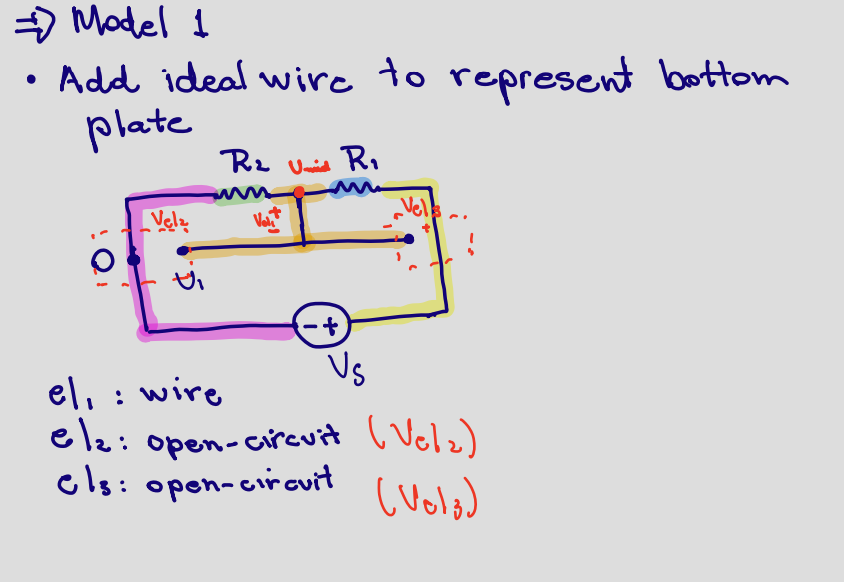 ⇒ Model 1
• Add ideal wire to represent bottom
plate
R₂ Umid R₁
Vel₂ Vel₁ + Vel₃
- +
0 U₁
- +
Vs
el₁ : wire
el₂ : open-circuit (Vel₂)
el₃ : open-circuit (Vel₃)